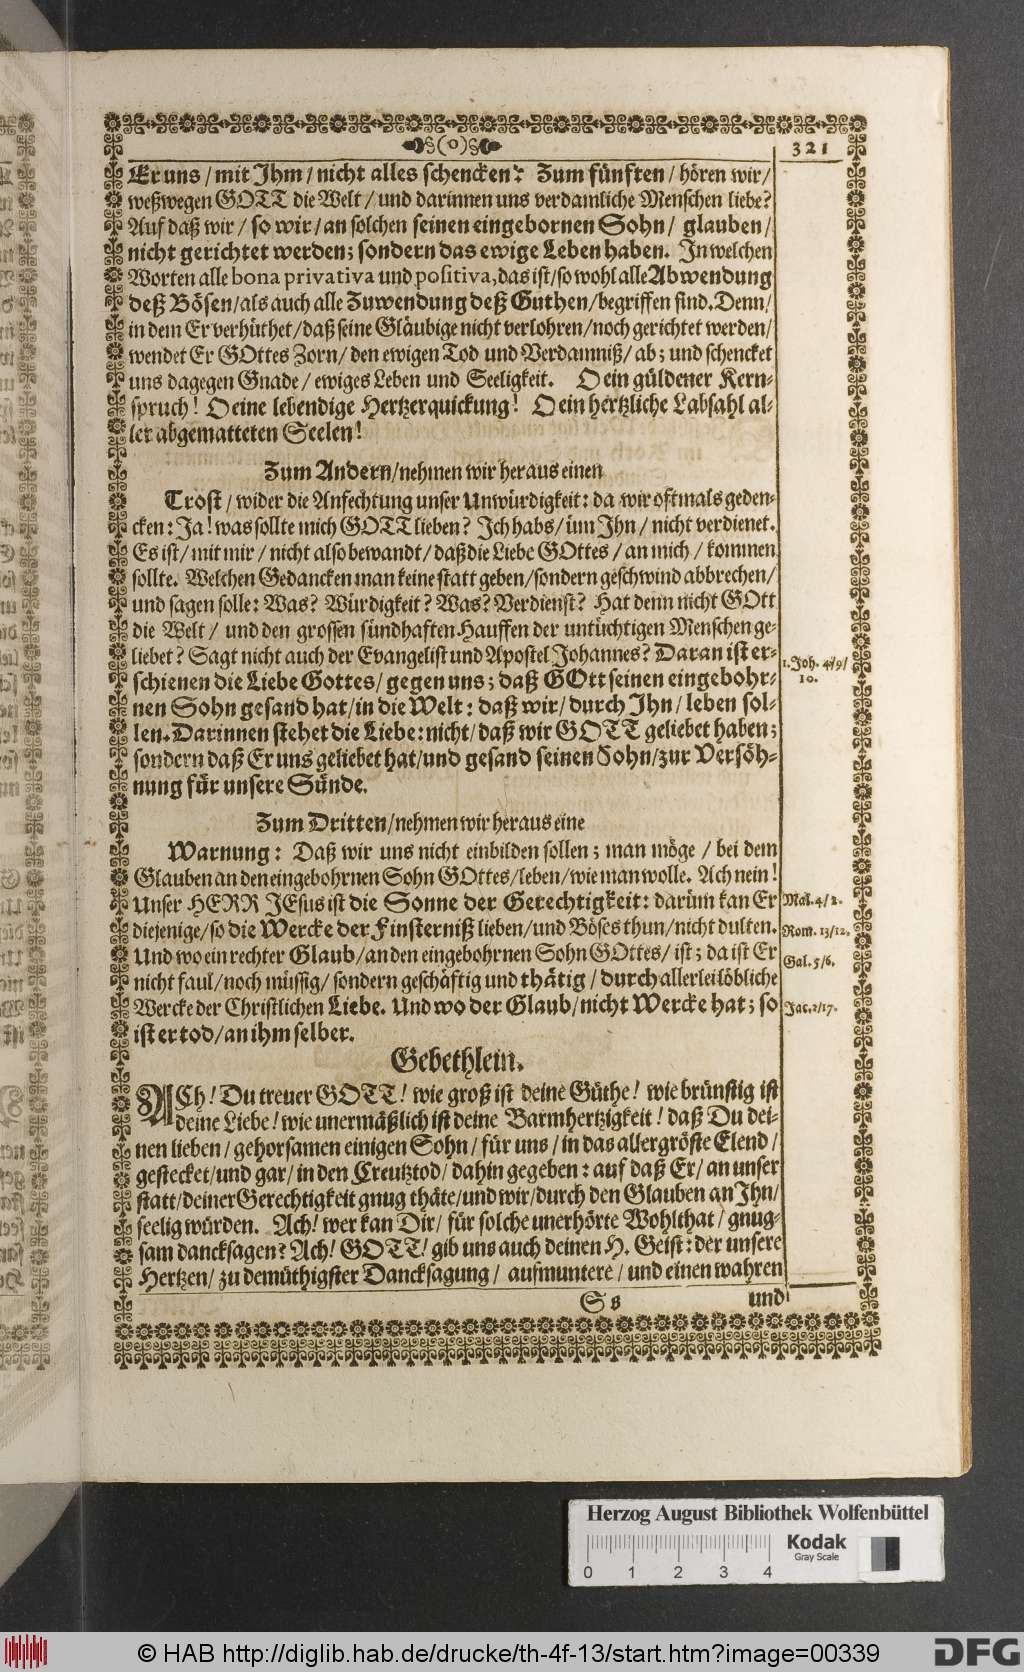 §(o)§
321
Er uns / mit Ihm / nicht alles schencken? Zum fünften / hören wir /
weßwegen GOTT die Welt / und darinnen uns verdamliche Menschen liebe?
Auf daß wir / so wir / an solchen seinen eingebornen Sohn / glauben /
nicht gerichtet werden; sondern das ewige Leben haben. In welchen
Worten alle bona privativa und positiva, das ist / so wohl alle Abwendung
deß Bösen / als auch alle Zuwendung deß Guthen / begriffen sind. Denn /
in dem Er verhüthet / daß seine Gläubige nicht verlohren / noch gerichtet werden /
wendet Er GOttes Zorn / den ewigen Tod und Verdamniß / ab; und schencket
uns dagegen Gnade / ewiges Leben und Seeligkeit. O ein güldener Kern-
spruch! O eine lebendige Hertzerquickung! O ein hertzliche Labsahl al-
ler abgematteten Seelen!
Zum Andern / nehmen wir heraus einen
Trost / wider die Anfechtung unser Unwürdigkeit: da wir oftmals geden-
cken: Ja! was sollte mich GOTT lieben? Ich habs / üm Ihn / nicht verdienet.
Es ist / mit mir / nicht also bewandt / daß die Liebe GOttes / an mich / kommen
sollte. Welchen Gedancken man keine statt geben / sondern geschwind abbrechen /
und sagen solle: Was? Würdigkeit? Was? Verdienst? Hat denn nicht GOtt
die Welt / und den grossen sündhaften Hauffen der untüchtigen Menschen ge-
liebet? Sagt nicht auch der Evangelist und Apostel Johannes? Daran ist er-
schienen die Liebe Gottes / gegen uns; daß GOtt seinen eingebohr-
nen Sohn gesand hat / in die Welt: daß wir / durch Ihn / leben sol-
len. Darinnen stehet die Liebe: nicht / daß wir GOTT geliebet haben;
sondern daß Er uns geliebet hat / und gesand seinen Sohn / zur Versöh-
nung für unsere Sünde.
1. Joh. 4/9/
10.
Zum Dritten / nehmen wir heraus eine
Warnung: Daß wir uns nicht einbilden sollen; man möge / bei dem
Glauben an den eingebohrnen Sohn GOttes / leben / wie man wolle. Ach nein!
Unser HERR JEsus ist die Sonne der Gerechtigkeit: darüm kan Er
diejenige / so die Wercke der Finsterniß lieben / und Böses thun / nicht dulten.
Und wo ein rechter Glaub / an den eingebohrnen Sohn GOttes / ist; da ist Er
nicht faul / noch müssig / sondern geschäftig und thätig / durch allerlei löbliche
Wercke der Christlichen Liebe. Und wo der Glaub / nicht Wercke hat; so
ist er tod / an ihm selber.
Mal. 4/2.
Rom. 13/12.
Gal. 5/6.
Jac. 2/17.
Gebethlein.
ACh! Du treuer GOTT! wie groß ist deine Güthe! wie brünstig ist
deine Liebe! wie unermäßlich ist deine Barmhertzigkeit! daß Du dei-
nen lieben / gehorsamen einigen Sohn / für uns / in das allergröste Elend /
gestecket / und gar / in den Creutztod / dahin gegeben: auf daß Er / an unser
statt / deiner Gerechtigkeit gnug thäte / und wir / durch den Glauben an Ihn /
seelig würden. Ach! wer kan Dir / für solche unerhörte Wohlthat / gnug-
sam dancksagen? Ach! GOTT! gib uns auch deinen H. Geist: der unsere
Hertzen / zu demüthigster Dancksagung / aufmuntere / und einen wahren
Ss
und
Herzog August Bibliothek Wolfenbüttel
0 1 2 3 4
Kodak
Gray Scale
© HAB http://diglib.hab.de/drucke/th-4f-13/start.htm?image=00339
DFG